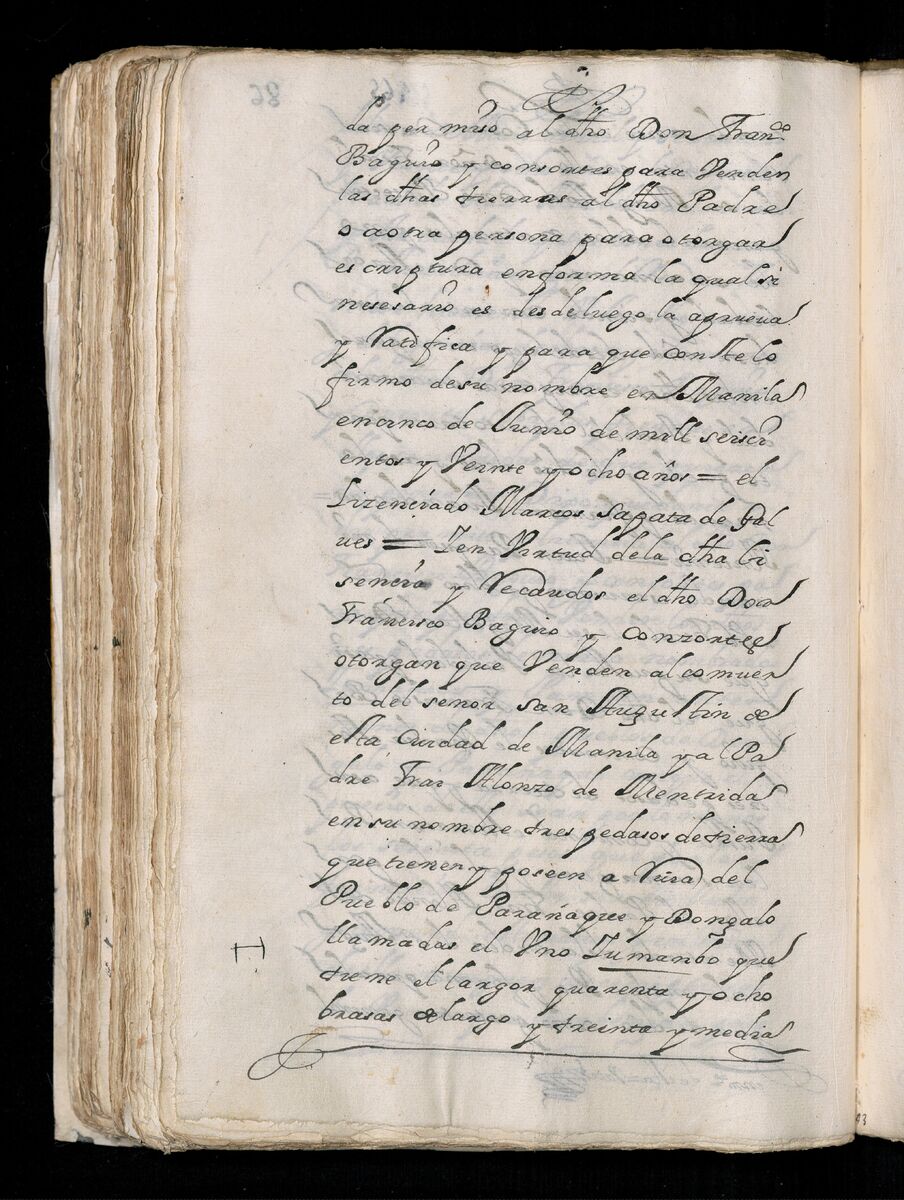 da permiso al dho Don Franco
Baguio y consortes para Venden
las dhas tierras al dho Padre
o a otra persona para otorgar
escriptura en forma la qual si
nesesario es desde luego la aprueva
y Ratifica y para que conste lo
firmo de su nombre en Manila
en cinco de Junio de mill seisci
entos y Veinte y ocho años = el
Lizenciado Marcos Sapata de Gal
ues = I en Virtud dela dha li
sencia y Recaudos el dho Don
Francisco Baguio y Conzortes
otorgan que Venden al comuen
to del señor san Augustin de
esta Ciudad de Manila y al Pa
dre Frai Alonzo de Mentrida
en su nombre tres pedasos de tierra
que tienen y poseen a Vira del
Pueblo de Parañaque y Dongalo
llamadas el Vno Tumanbo que
tiene el largor quarenta y ocho
brasas de largo y treinta y media